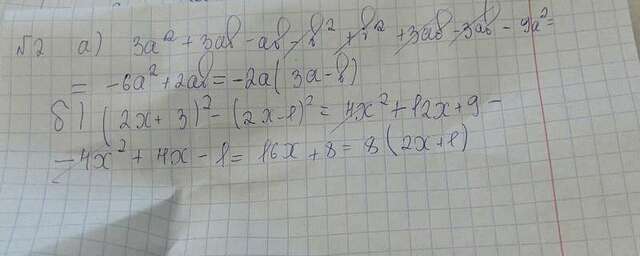 №2 а) 3a² + 3ab - ab - b² + b² + 3ab - 3ab - 9a² =
= -6a² + 2ab = -2a(3a - b)
б) (2x + 3)² - (2x - 1)² = 4x² + 12x + 9 -
- 4x² + 4x - 1 = 16x + 8 = 8(2x + 1)